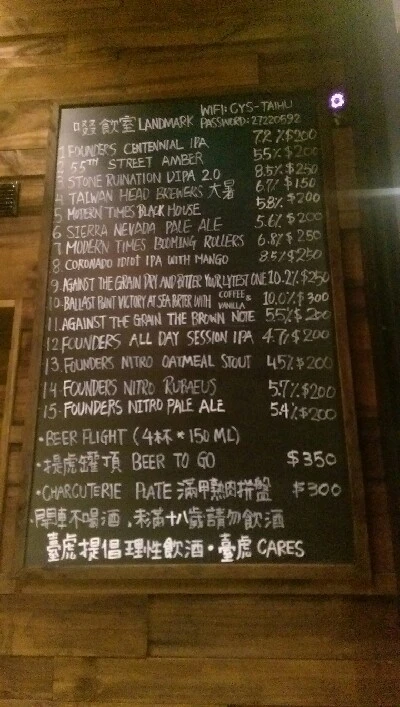 啜飲室 LANDMARK WIFI: CYS-TAIHU
PASSWORD: 27220592
1 FOUNDERS CENTENNIAL IPA 7.2% $200
2 55TH STREET AMBER 5.5% $200
3 STONE RUINATION DIPA 2.0 8.5% $250
4 TAIWAN HEAD BREWERS 大暑 6.7% $150
5 MODERN TIMES BLACK HOUSE 5.8% $200
6 SIERRA NEVADA PALE ALE 5.6% $200
7 MODERN TIMES BOOMING ROLLERS 6.8% $250
8 CORONADO IDIOT IPA WITH MANGO 8.5% $250
9. AGAINST THE GRAIN DRY AND BITTER YOUR LYTEST ONE 10.2% $250
10. BALLAST POINT VICTORY AT SEA PORTER WITH COFFEE & VANILLA 10.0% $300
11. AGAINST THE GRAIN THE BROWN NOTE 5.5% $200
12. FOUNDERS ALL DAY SESSION IPA 4.7% $200
13. FOUNDERS NITRO OATMEAL STOUT 4.5% $200
14. FOUNDERS NITRO RUBAEUS 5.7% $200
15. FOUNDERS NITRO PALE ALE 5.4% $200
• BEER FLIGHT (4杯 * 150 ML)
• 掦虎罐頂 BEER TO GO $350
• CHARCUTERIE PLATE 滿甲熟肉拼盤 $300
• 開車不喝酒，未滿十八歲請勿飲酒
臺虎提倡理性飲酒 • 臺虎 CARES